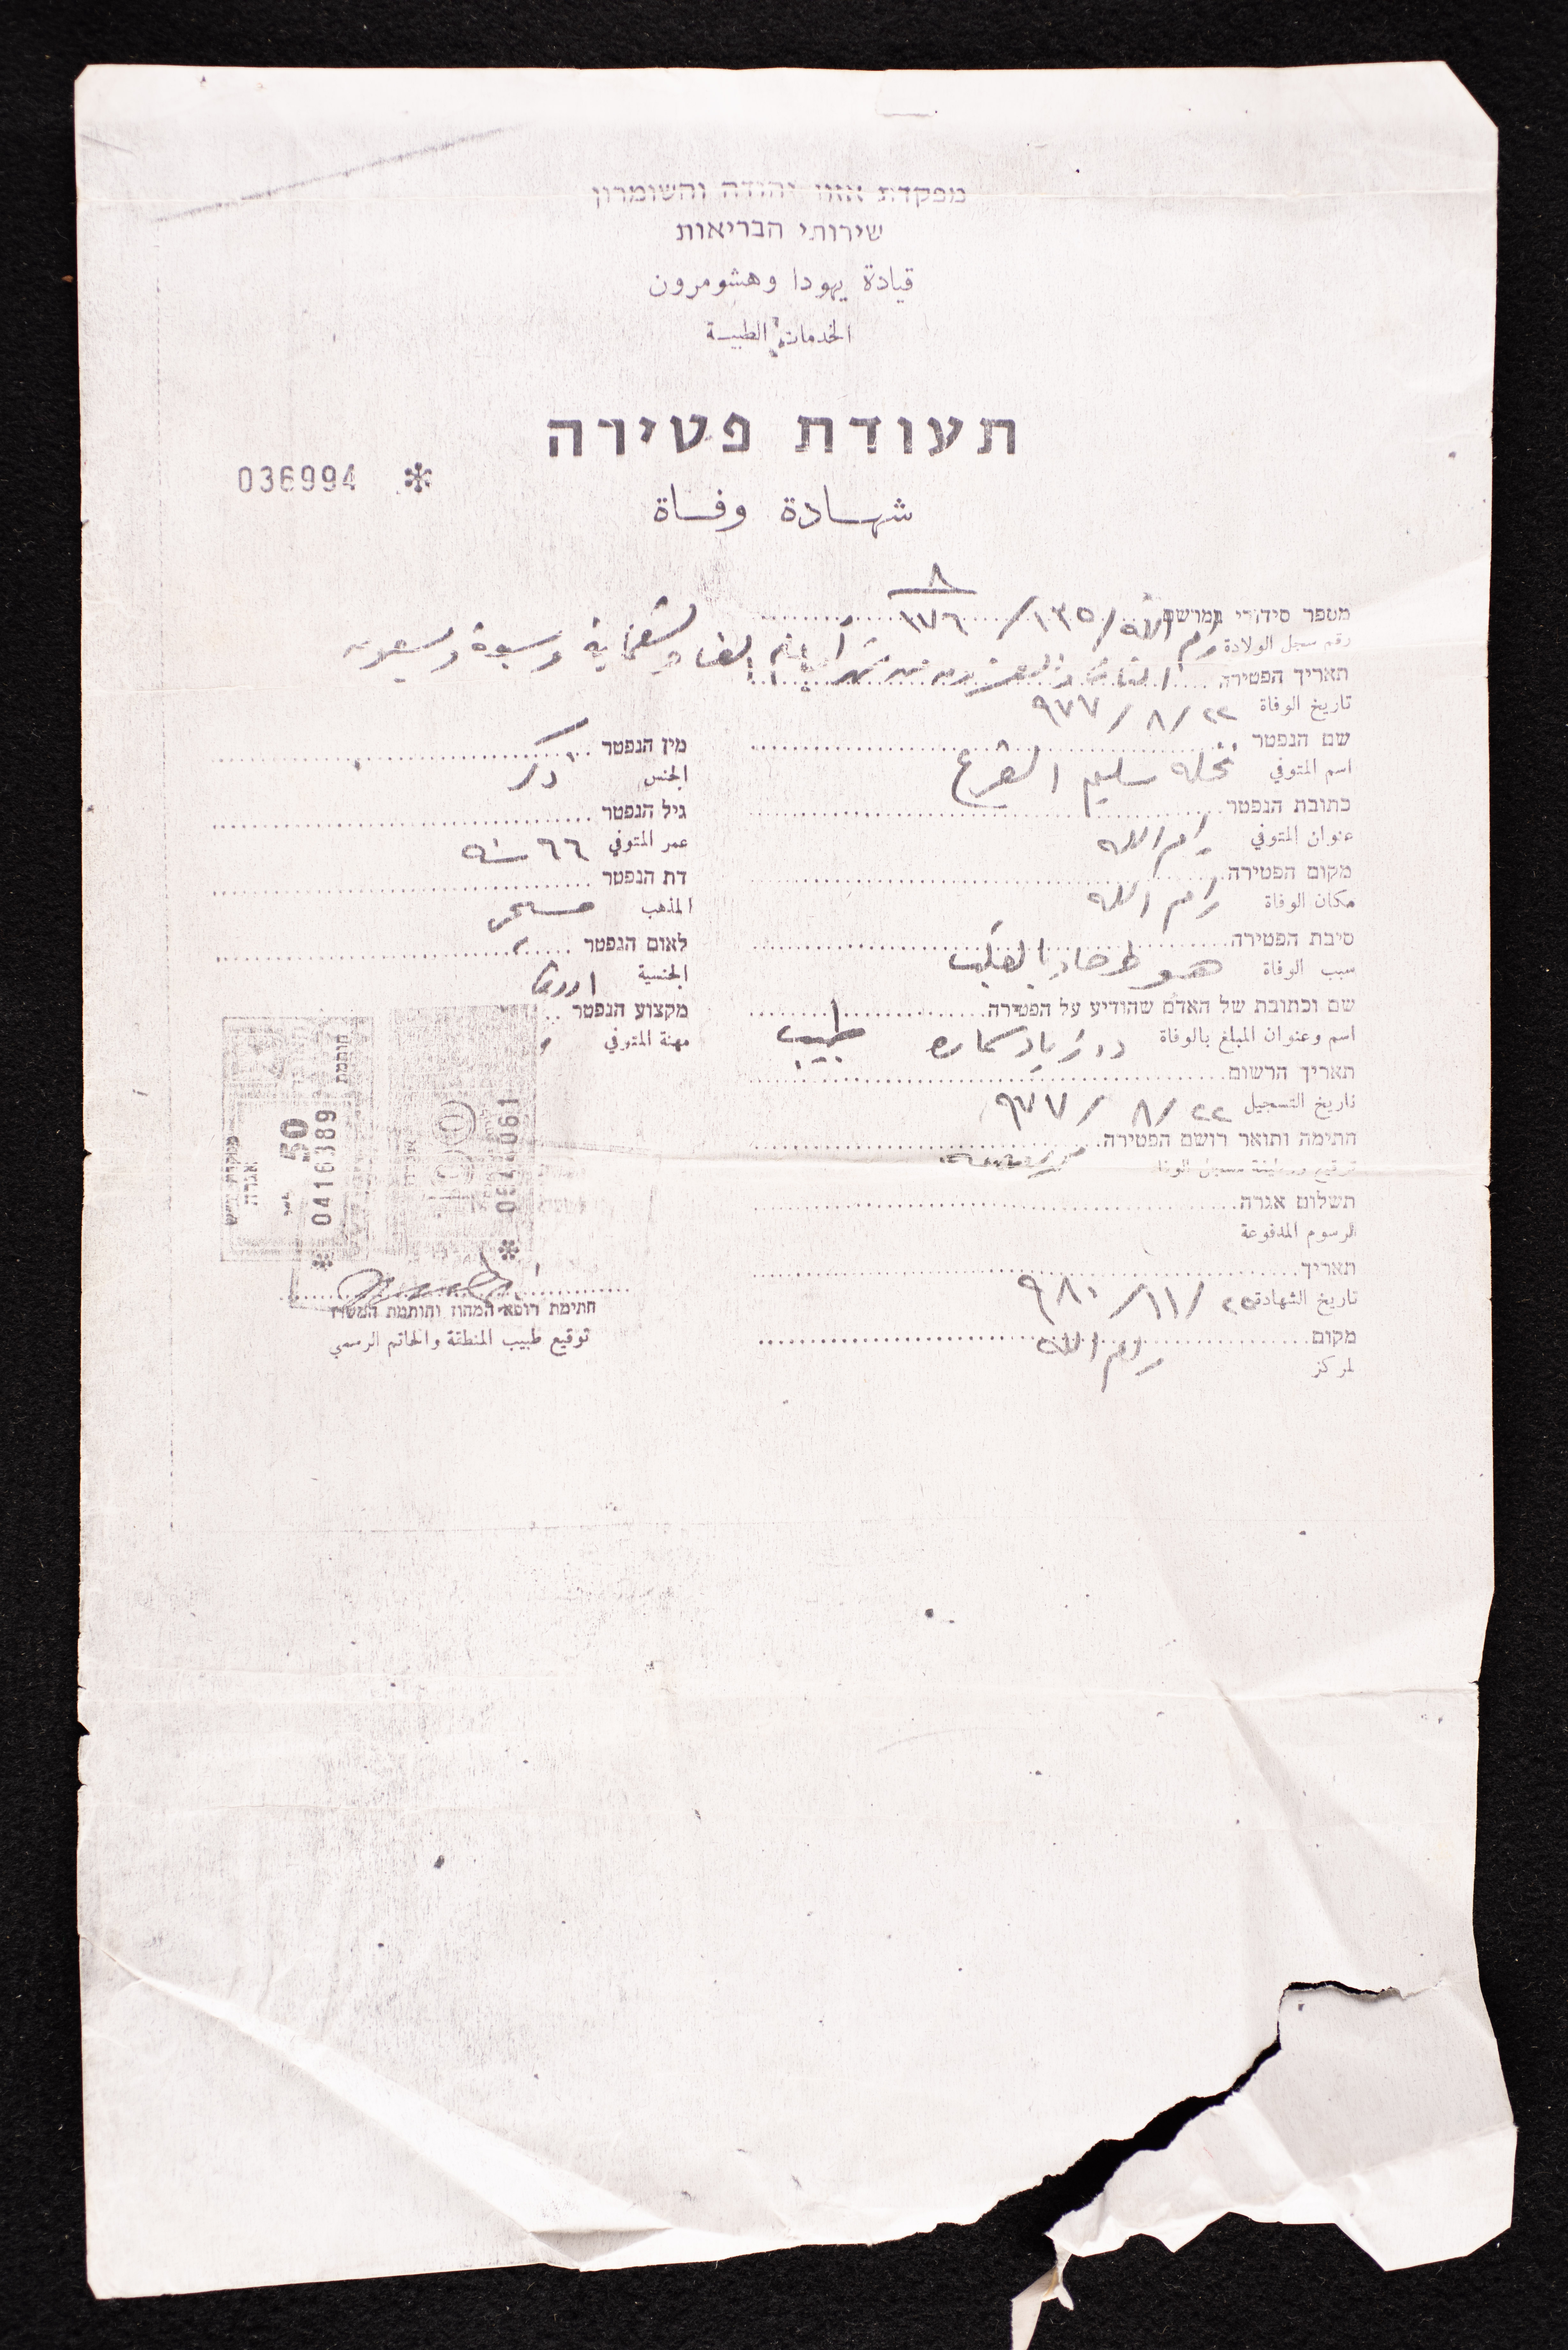 מפקדת אזור יהודה והשומרון
שירותי הבריאות
قيادة يهودا وهشومرون
الخدمات الطبية
תעודת פטירה
036994 *
شهادة وفاة
٨
מספר סידורי במרשם رام الله / ١٣٥ / ١٧٦
رقم سجل الولادة
תאריך הפטירה الثاني والعشرون من شهر آب الف وتسعماية وسبعة وسبعون
تاريخ الوفاة ٢٢ / ٨ / ٩٧٧
שם הנפטר
اسم المتوفي نخله سليم القرع
כתובת הנפטר
عنوان المتوفي رام الله
מקום הפטירה
مكان الوفاة رام الله
סיבת הפטירה
سبب الوفاة هبوط حاد بالقلب
שם וכתובת של האדם שהודיע על הפטירה
اسم وعنوان المبلغ بالوفاة د. زياد طبيب
תאריך הרשום
تاريخ التسجيل ٢٢ / ٨ / ٩٧٧
חתימה ותואר רושם הפטירה
توقيع ووظيفة مسجل الوفاة
תשלום אגרה
الرسوم المدفوعة
תאריך
تاريخ الشهادة ٢٥ / ١١ / ٩٨٠
מקום
المركز رام الله
מין הנפטר
الجنس ذكر
גיל הנפטר
عمر المتوفي ٦٦ سنه
דת הנפטר
المذهب مسيحي
לאום הנפטר
الجنسية اردني
מקצוע הנפטר
مهنة المتوفي
חותמת
אגרה
50
* 0416389
*
חתימת רופא המחוז וחותמת המשרד
توقيع طبيب المنطقة والخاتم الرسمي